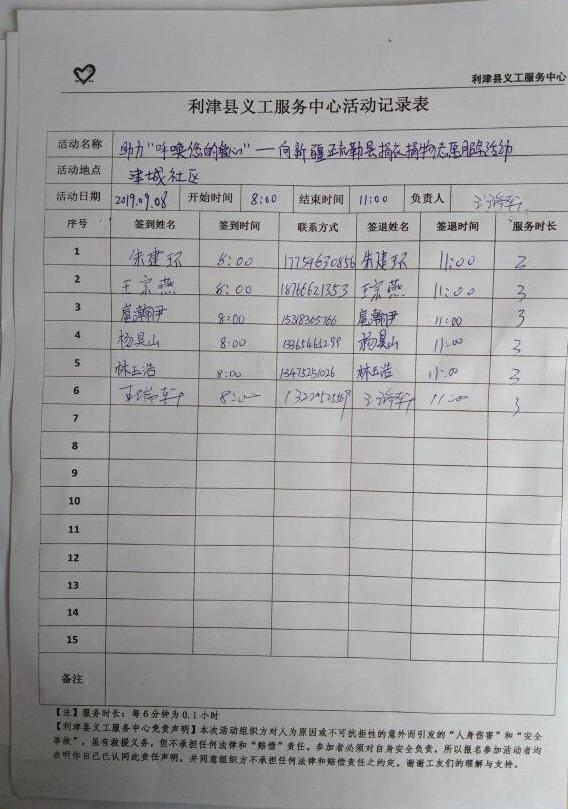 利津县义工服务中心
利津县义工服务中心活动记录表
活动名称 助力"呼唤您的爱心"——向新疆疏勒县捐衣捐物志愿服务活动
活动地点 津城社区
活动日期 2019.09.08 开始时间 8:00 结束时间 11:00 负责人 王瑞军
序号 签到姓名 签到时间 联系方式 签退姓名 签退时间 服务时长
1 朱建环 8:00 17754630856 朱建环 11:00 3
2 王宗燕 8:00 18766621353 王宗燕 11:00 3
3 扈瀚尹 8:00 15318365766 扈瀚尹 11:00 3
4 杨昊山 8:00 13365465299 杨昊山 11:00 3
5 林玉浩 8:00 13475251026 林玉浩 11:00 3
6 王瑞军 8:00 王瑞军 11:00 3
7
8
9
10
11
12
13
14
15
备注
【注】服务时长:每6分钟为0.1小时
【利津县义工服务中心免责声明】本次活动组织方对人为原因或不可抗拒性的意外而引发的"人身伤害"和"安全
事故",虽有救援义务,但不承担任何法律和"赔偿"责任。参加者必须对自身安全负责,所以报名参加活动者均
表明你自己已认同此责任声明,并同意组织方不承担任何法律和赔偿责任之约定。谢谢工友们的理解与支持。